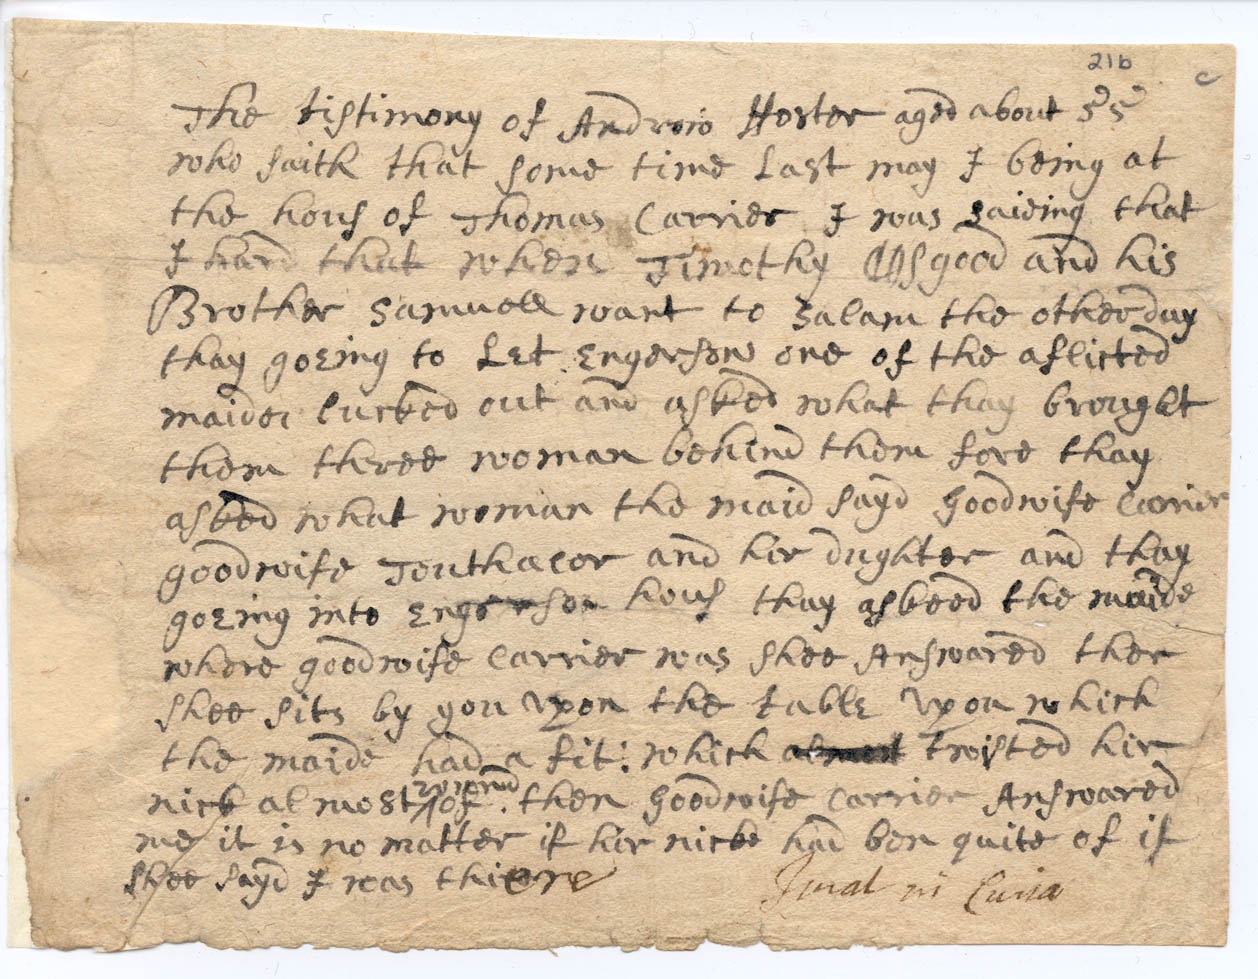 21b c
The tistimony of Andrew Foster aged about 55
who saith that some time Last may I being at
the hous of Thomas Carrier I was saieing that
I hard that when Timothy Osgood and his
Brother Samuell want to Salam the other day
thay goeing to Let Engerson one of the aflicted
maides lucked out and asked what thay brought
them three woman behind them fore thay
asked what woman the maid sayd goodwife Carrier
goodwife Touthacor and hir dughter and thay
goeing into Engerson hous thay askeed the maide
where goodwife Carrier was shee Answared ther
shee sits by you vpon the table vpon which
the maide had a fit: which almost twisted hir
nick almost round of. then goodwife Carrier Answared
me it is no matter if hir nicke had ben quite of if
shee sayd I was thiere Jurat in Curia